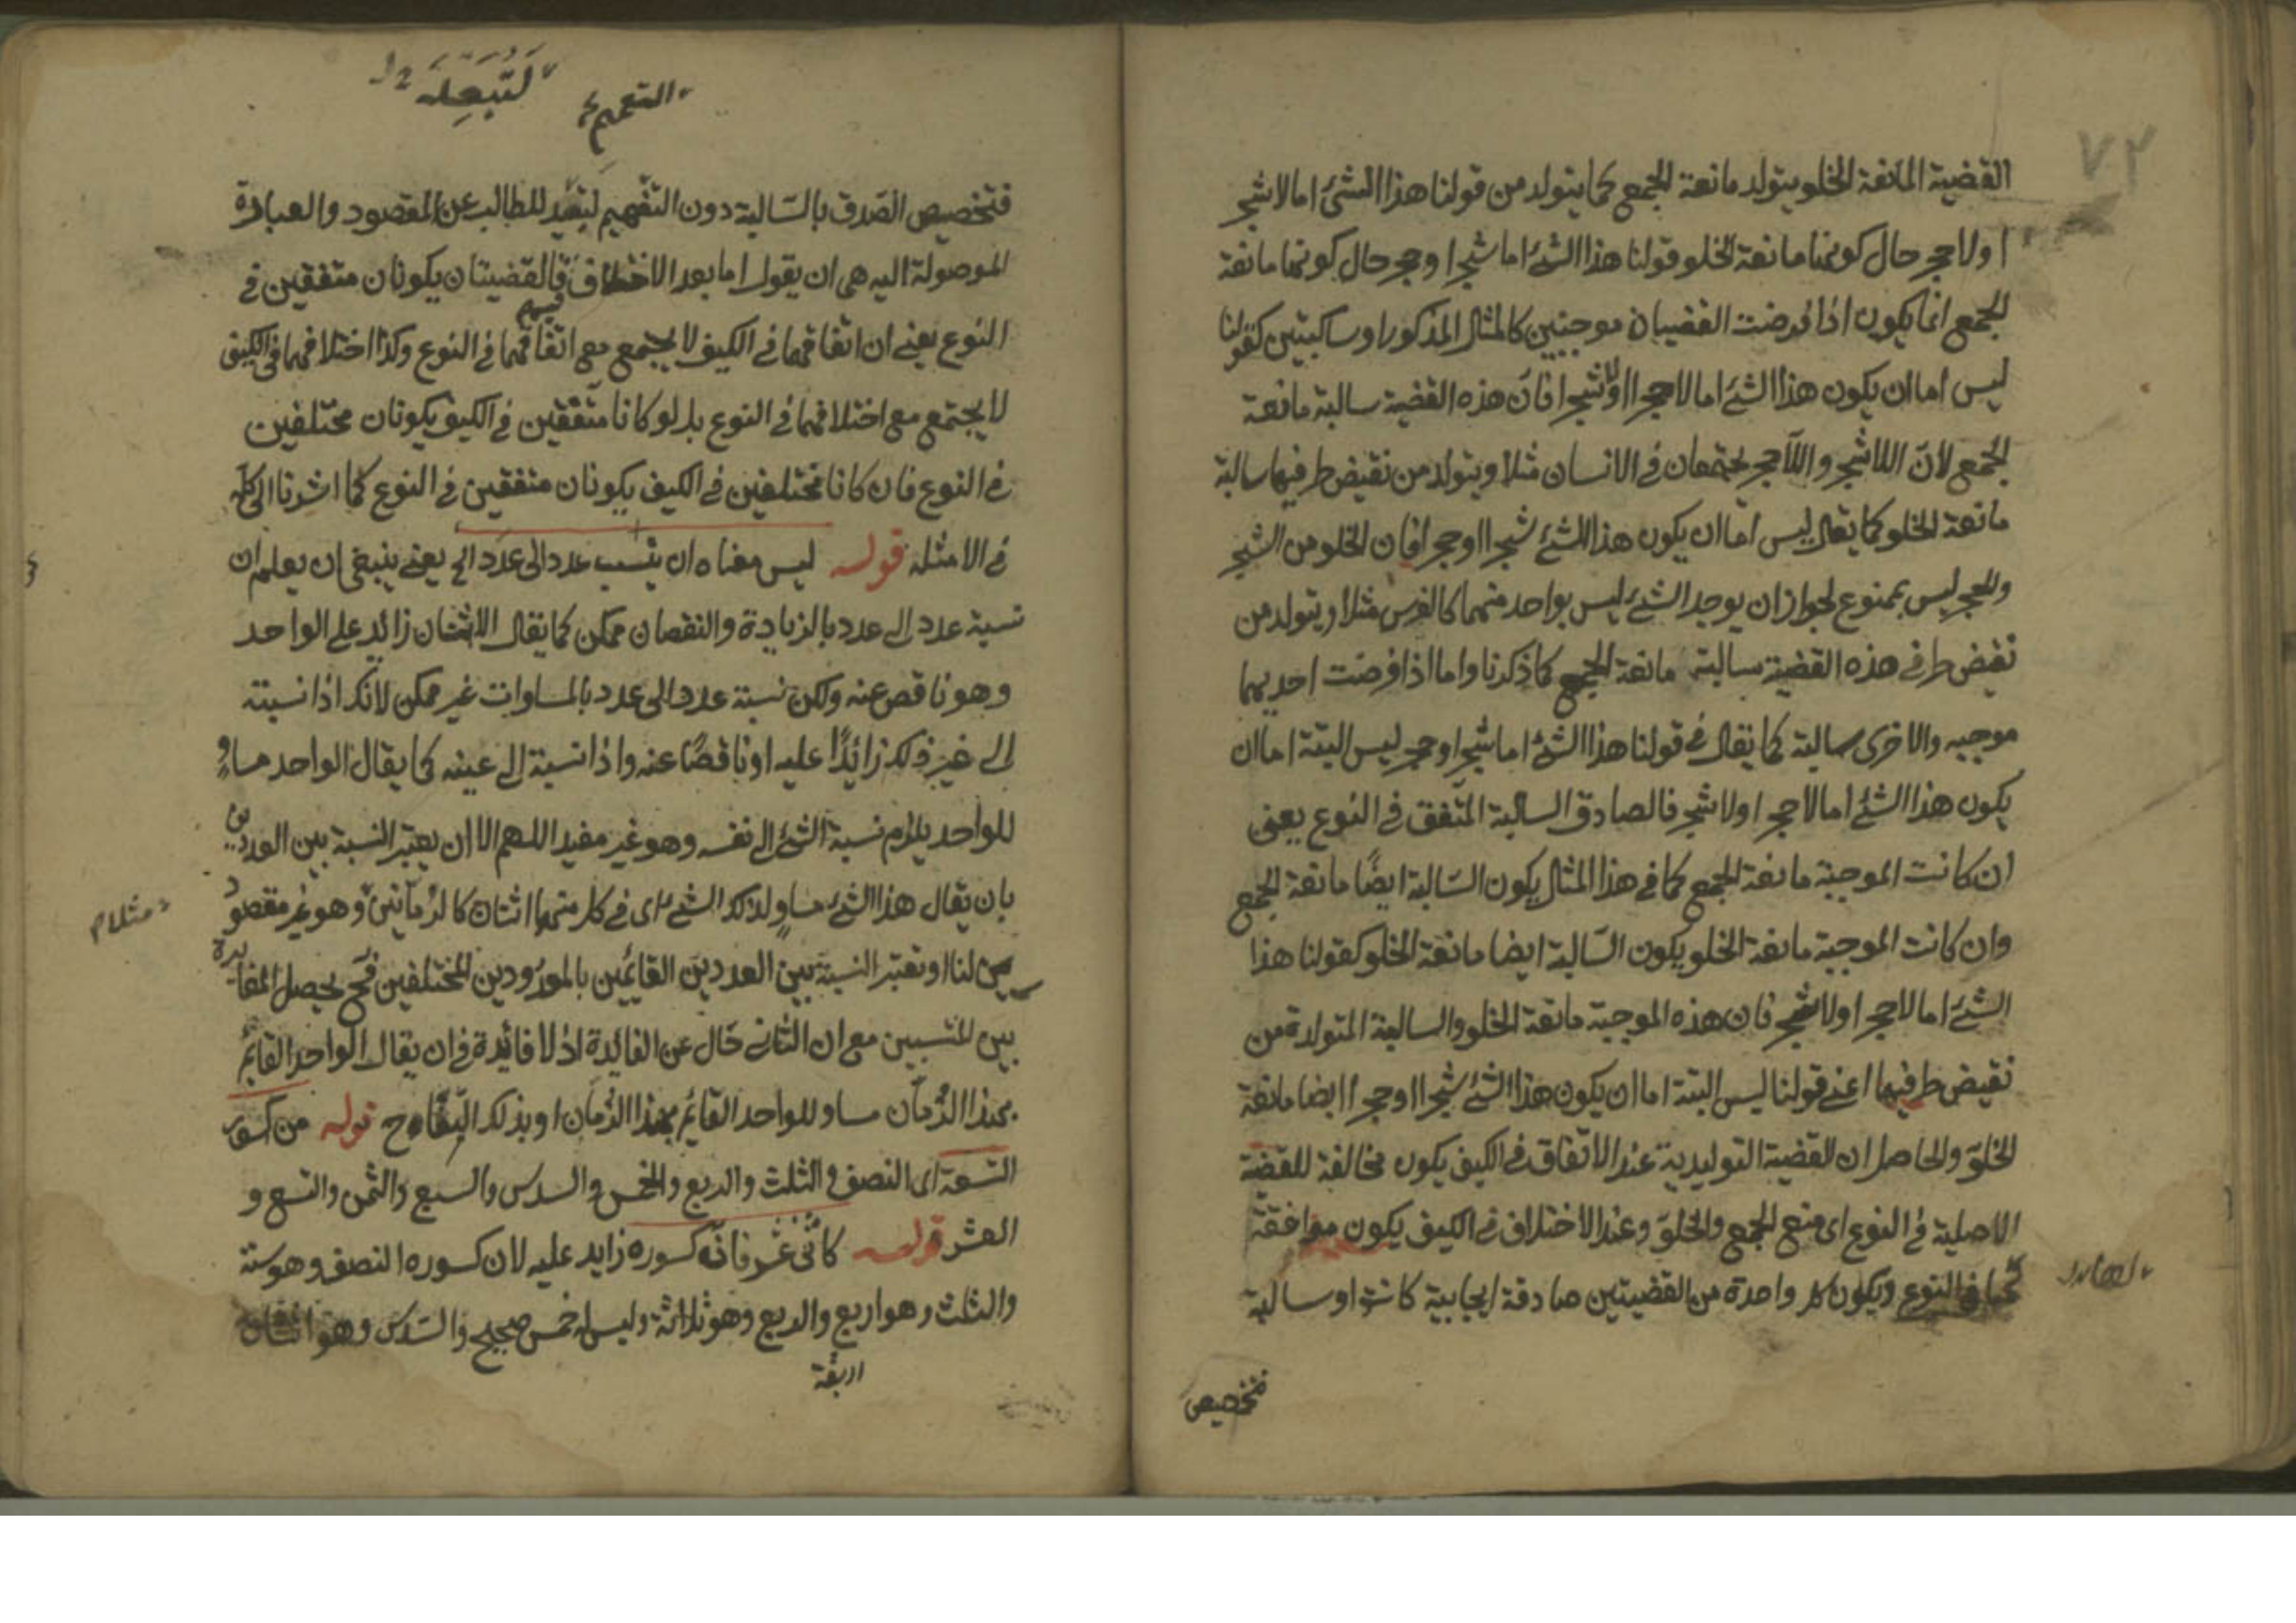 ٧٢
القضية المانعة الخلو يتولد مانعة الجمع كما يتولد من قولنا هذا الشئ اما لاشجر
اولا حجر حال كونها مانعة الخلو قولنا هذا الشئ اما شجرا وحجر حال كونها مانعة
الجمع انما يكون اذا فرضت القضيتان موجبتين كالمثال المذكور او سالبتين كقولنا
ليس اما ان يكون هذا الشئ اما لا حجرا او لا شجرا فان هذه القضية سالبة مانعة
الجمع لان اللاشجر واللاحجر يجتمعان في الانسان مثلا ويتولد من نقيض طرفيها سالبة
مانعة الخلو كما يقال ليس اما ان يكون هذا الشئ شجرا او حجرا فان الخلو من الشجر
والحجر ليس بممنوع لجواز ان يوجد الشئ ليس بواحد منهما كالفرس مثلا ويتولد من
نقيض طرفي هذه القضية سالبة مانعة الجمع كما ذكرنا واما اذا فرضت احديهما
موجبه والاخرى سالبة كما يقال في قولنا هذا الشئ اما شجر او حجر ليس البتة اما ان
يكون هذا الشئ اما لا حجر اولا شجر فالصادق السالبة المتفق في النوع يعنى
ان كانت الموجبة مانعة الجمع كما في هذا المثال يكون السالبة ايضًا مانعة الجمع
وان كانت الموجبة مانعة الخلو يكون السالبة ايضا مانعة الخلو كقولنا هذا
الشئ اما لا حجر اولا شجر فان هذه الموجبة مانعة الخلو والسالبة المتولدة من
نقيض طرفيها اعنى قولنا ليس البتة اما ان يكون هذا الشئ شجرا او حجرا ايضا مانعة
الخلو والحاصل ان القضية التوليدية عند الاتفاق في الكيف يكون مخالفة للقضية
الاصلية في النوع اى منع الجمع والخلو وعند الاختلاف في الكيف يكون موافقة
لها في النوع ويكون كل واحدة من القضيتين صادقة ايجابية كانتا او سالبة
فتخصيص
التعميم
فتخصيص الصدق بالسالبة دون التفهيم لتبعيد للطالب عن المقصود والعبارة
الموصولة اليه هى ان يقول اما بعد الاختلاف فالقضيتان يكونان متفقين في
النوع يعنى ان اتفاقهما في الكيف لا يجتمع مع اتفاقهما في النوع وكذا اختلافهما في الكيف
لا يجتمع مع اختلافهما في النوع بل لو كانا متفقين في الكيف يكونان مختلفين
في النوع فان كانا مختلفين في الكيف يكونان متفقين في النوع كما اشرنا الى كله
في الامثله قوله ليس معناه ان ينسب عدد الى عدد الخ يعنى ينبغى ان يعلم ان
نسبة عدد الى عدد بالزيادة والنقصان ممكن كما يقال الاثنان زائد على الواحد
وهو ناقص عنه ولكن نسبة عدد الى عدد بالمساوات غير ممكن لانك اذا نسبته
الى غيره فلك زائدًا عليه او ناقصًا عنه واذا نسبة الى عينه كما يقال الواحد مساوٍ
للواحد يلزم نسبة الشئ الى نفسه وهو غير مفيد اللهم الا ان يعتبر النسبة بين العددين
بان يقال هذا الشئ مساوٍ لذلك الشئ اى في كل منهما اثنان كالرمانتين وهو غير مقصود
مثلا م
لنا او تعتبر النسبة بين العددين القائمين بالمعدودين المختلفين فح يحصل المغايرة
بين المنتسبين مع ان الثانى خال عن الفائدة اذ لا فائدة في ان يقال الواحد القائم
بهذا الرمان مساو للواحد القائم بهذا الرمان او بذلك التفاح قوله من كسور
التسعة اى النصف والثلث والربع والخمس والسدس والسبع والثمن والتسع و
العشر قوله كاثنى عشر فانه كسوره زايد عليه لان كسوره النصف وهو ستة
والثلث وهو اربع والربع وهو ثلاثة وليس له خمس صحيح والسدس وهو اثنان
اربعة